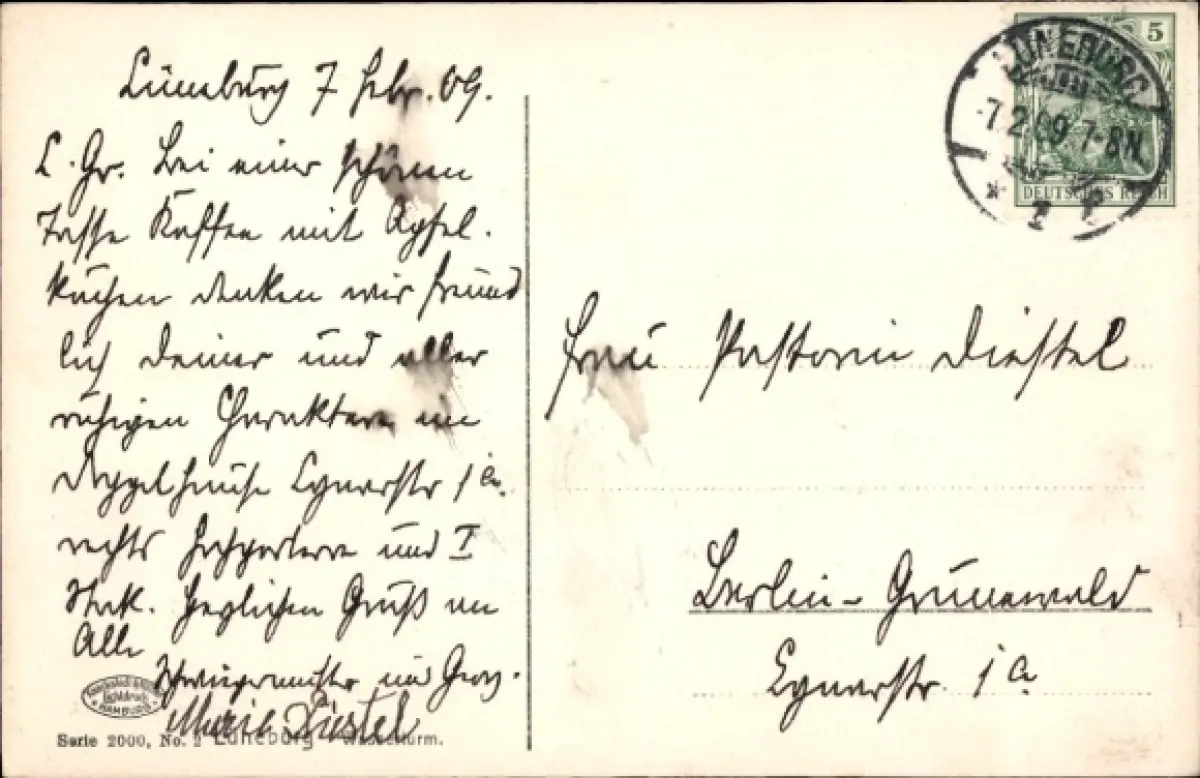 Lüneburg 7 Febr. 09.
L. Gr. Bei einer schönen
Tasse Kaffee mit Apfel-
kuchen denken wir freund
lich deiner und aller
ruhigen Charaktere im
Doppelhause Lynarstr 1a.
rechts Hochparterre und I
Stock. Herzlichen Gruß an
Alle
Schwiegermutter und Georg.
Marie Diestel
HAMBURG
Serie 2000, No. 2 Lüneburg Wasserturm.
5
LÜNEBURG
7.2.09 7-8N.
DEUTSCHES REICH
Frau Pastorin Diestel
Berlin-Grunewald
Lynarstr. 1a